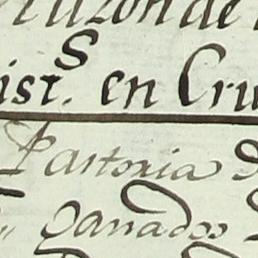 razon de
ist.s en Cru
Pastoria d
Ganados